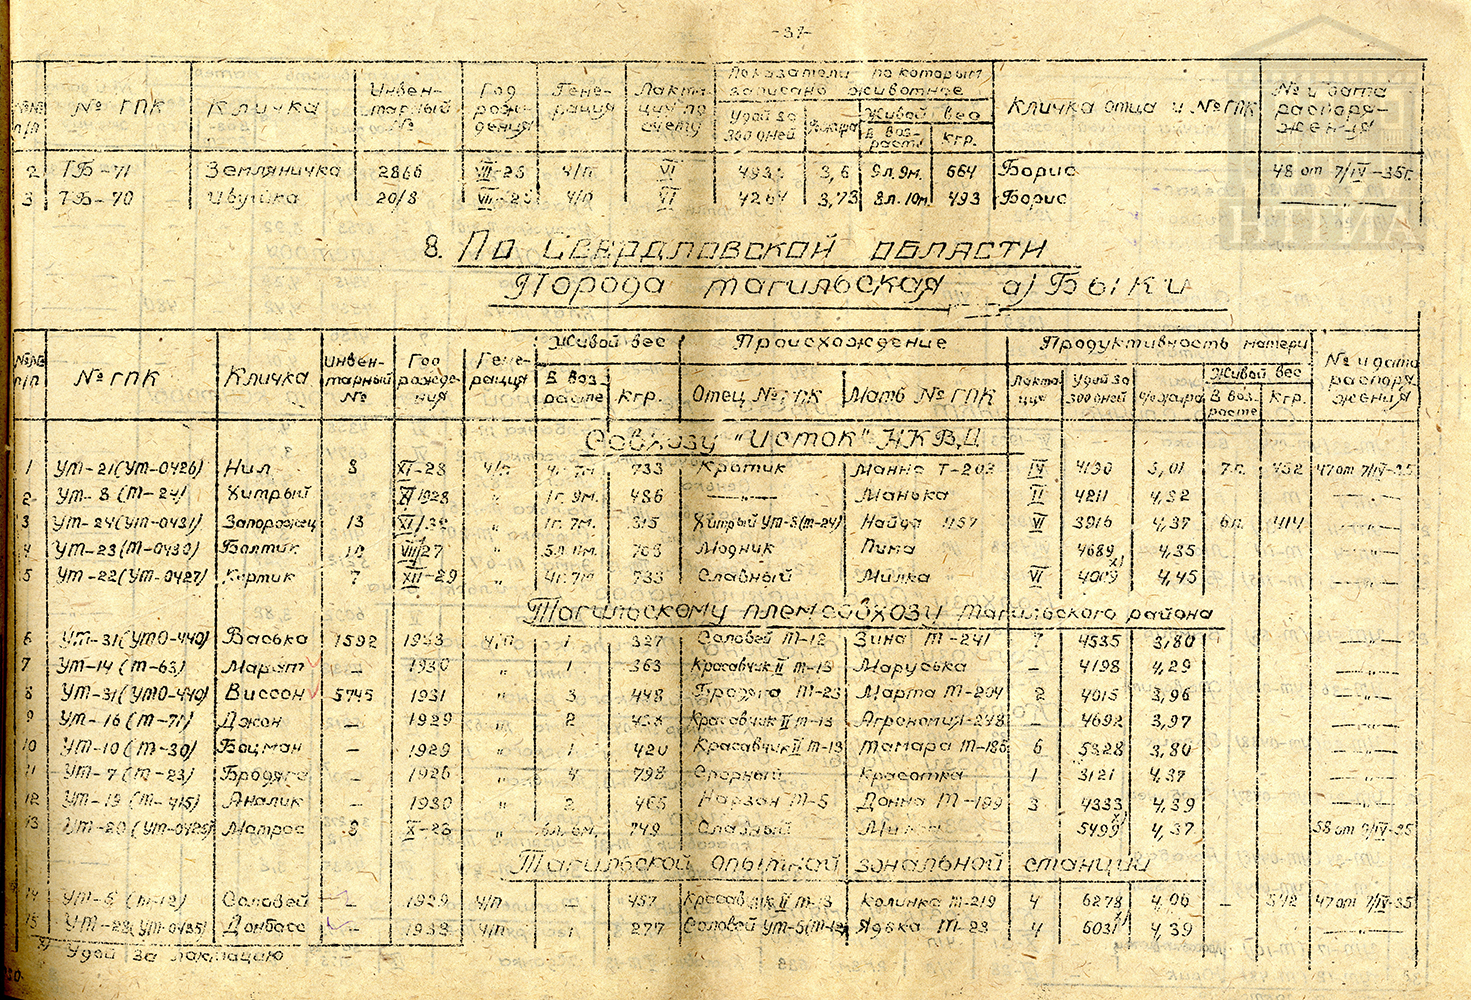 -37-
№№ п/п № ГПК Кличка Инвентарный № Год рождения Генерация Лактация по счету Показатели по которым записано животное Удой за 300 дней % жира Живой вес В возрасте Кгр. Кличка отца и № ГПК № и дата распоряжения
2 ТБ-71 Земляничка 2866 VII-25 4/п VI 493 3,6 9л.9м. 664 Борис 48 от 7/IV-35г.
3 ТБ-70 Ивушка 20/8 VII-25 4/п VI 4264 3,73 8л.10м. 493 Борис
8. По Свердловской области
Порода тагильская а) Быки
№№ п/п № ГПК Кличка Инвентарный № Год рождения Генерация Живой вес В возрасте Кгр. Происхождение Отец № ГПК Мать № ГПК Продуктивность матери Лактация Удой за 300 дней % жира Живой вес В возрасте Кгр. № и дата распоряжения
Совхозу "Исток" НКВД
1 УТ-21(УТ-0426) Нил 8 XI-28 4/п 4г.7м. 733 Кротик Манна Т-203 IV 4130 3,01 7г. 452 47 от 7/IV-35
2 УТ-8 (Т-24) Хитрый XI 1928 1г.9м. 486 —"— Манька II 4211 4,32 —"—
3 УТ-24(УТ-0431) Запорожец 13 XI/32 " 1г.7м. 315 Хитрый УТ-8(Т-24) Найда 1157 VI 3916 4,37 6л. 414 —"—
4 УТ-23(Т-0430) Балтик 10 VIII/27 " 5л.11м. 703 Модник Пима 4689 4,35 —"—
5 УТ-22(УТ-0427) Кортик 7 XII-29 " 4г.7м 733 Славный Милка VI 4009 x) 4,45 —"—
Тагильскому племсовхозу Тагильского района
6 УТ-31(УТО-440) Васька 1592 1933 4/п 1 327 Соловей Т-12 Зина Т-241 7 4535 3,80 —"—
7 УТ-14 (Т-63) Марат 1930 " 1 363 Красавчик II Т-13 Маруська — 4198 4,29 —"—
8 УТ-31(УТО-440) Виссон 5745 1931 " 3 448 Бродяга Т-23 Марта Т-204 2 4015 3,96 —"—
9 УТ-16 (Т-71) Джон — 1929 " 2 Красавчик II Т-13 Агрономия-248 — 4692 3,97 —"—
10 УТ-10 (Т-30) Боцман — 1929 " 1 420 Красавчик II Т-13 Тамара Т-186 6 5328 3,80 —"—
11 УТ-7 (Т-23) Бродяга — 1926 " 4 798 Спорный Красотка 1 3121 4,37 —"—
12 УТ-19 (Т-415) Аналик — 1930 " 2 465 Нарзан Т-5 Донна Т-199 3 4333 4,39 —"—
13 УТ-20 (УТ-0425) Матрос 8 X-26 " 6л.6м. 749 Славный 5499 x) 4,37 58 от 9/IV-35
Тагильской опытной зональной станции
14 УТ-5 (Т-12) Соловей — 1929 4/п — 457 Красавчик II Т-13 Калинка Т-219 4 6278 4,06 — 542 47 от 7/IV-35
15 УТ-28(УТ-0435) Донбасс — 1933 4/п 1 277 Соловей УТ-5(Т-12) Ядька Т-23 4 5031 x) 4,39 —"—
x) Удой за лактацию